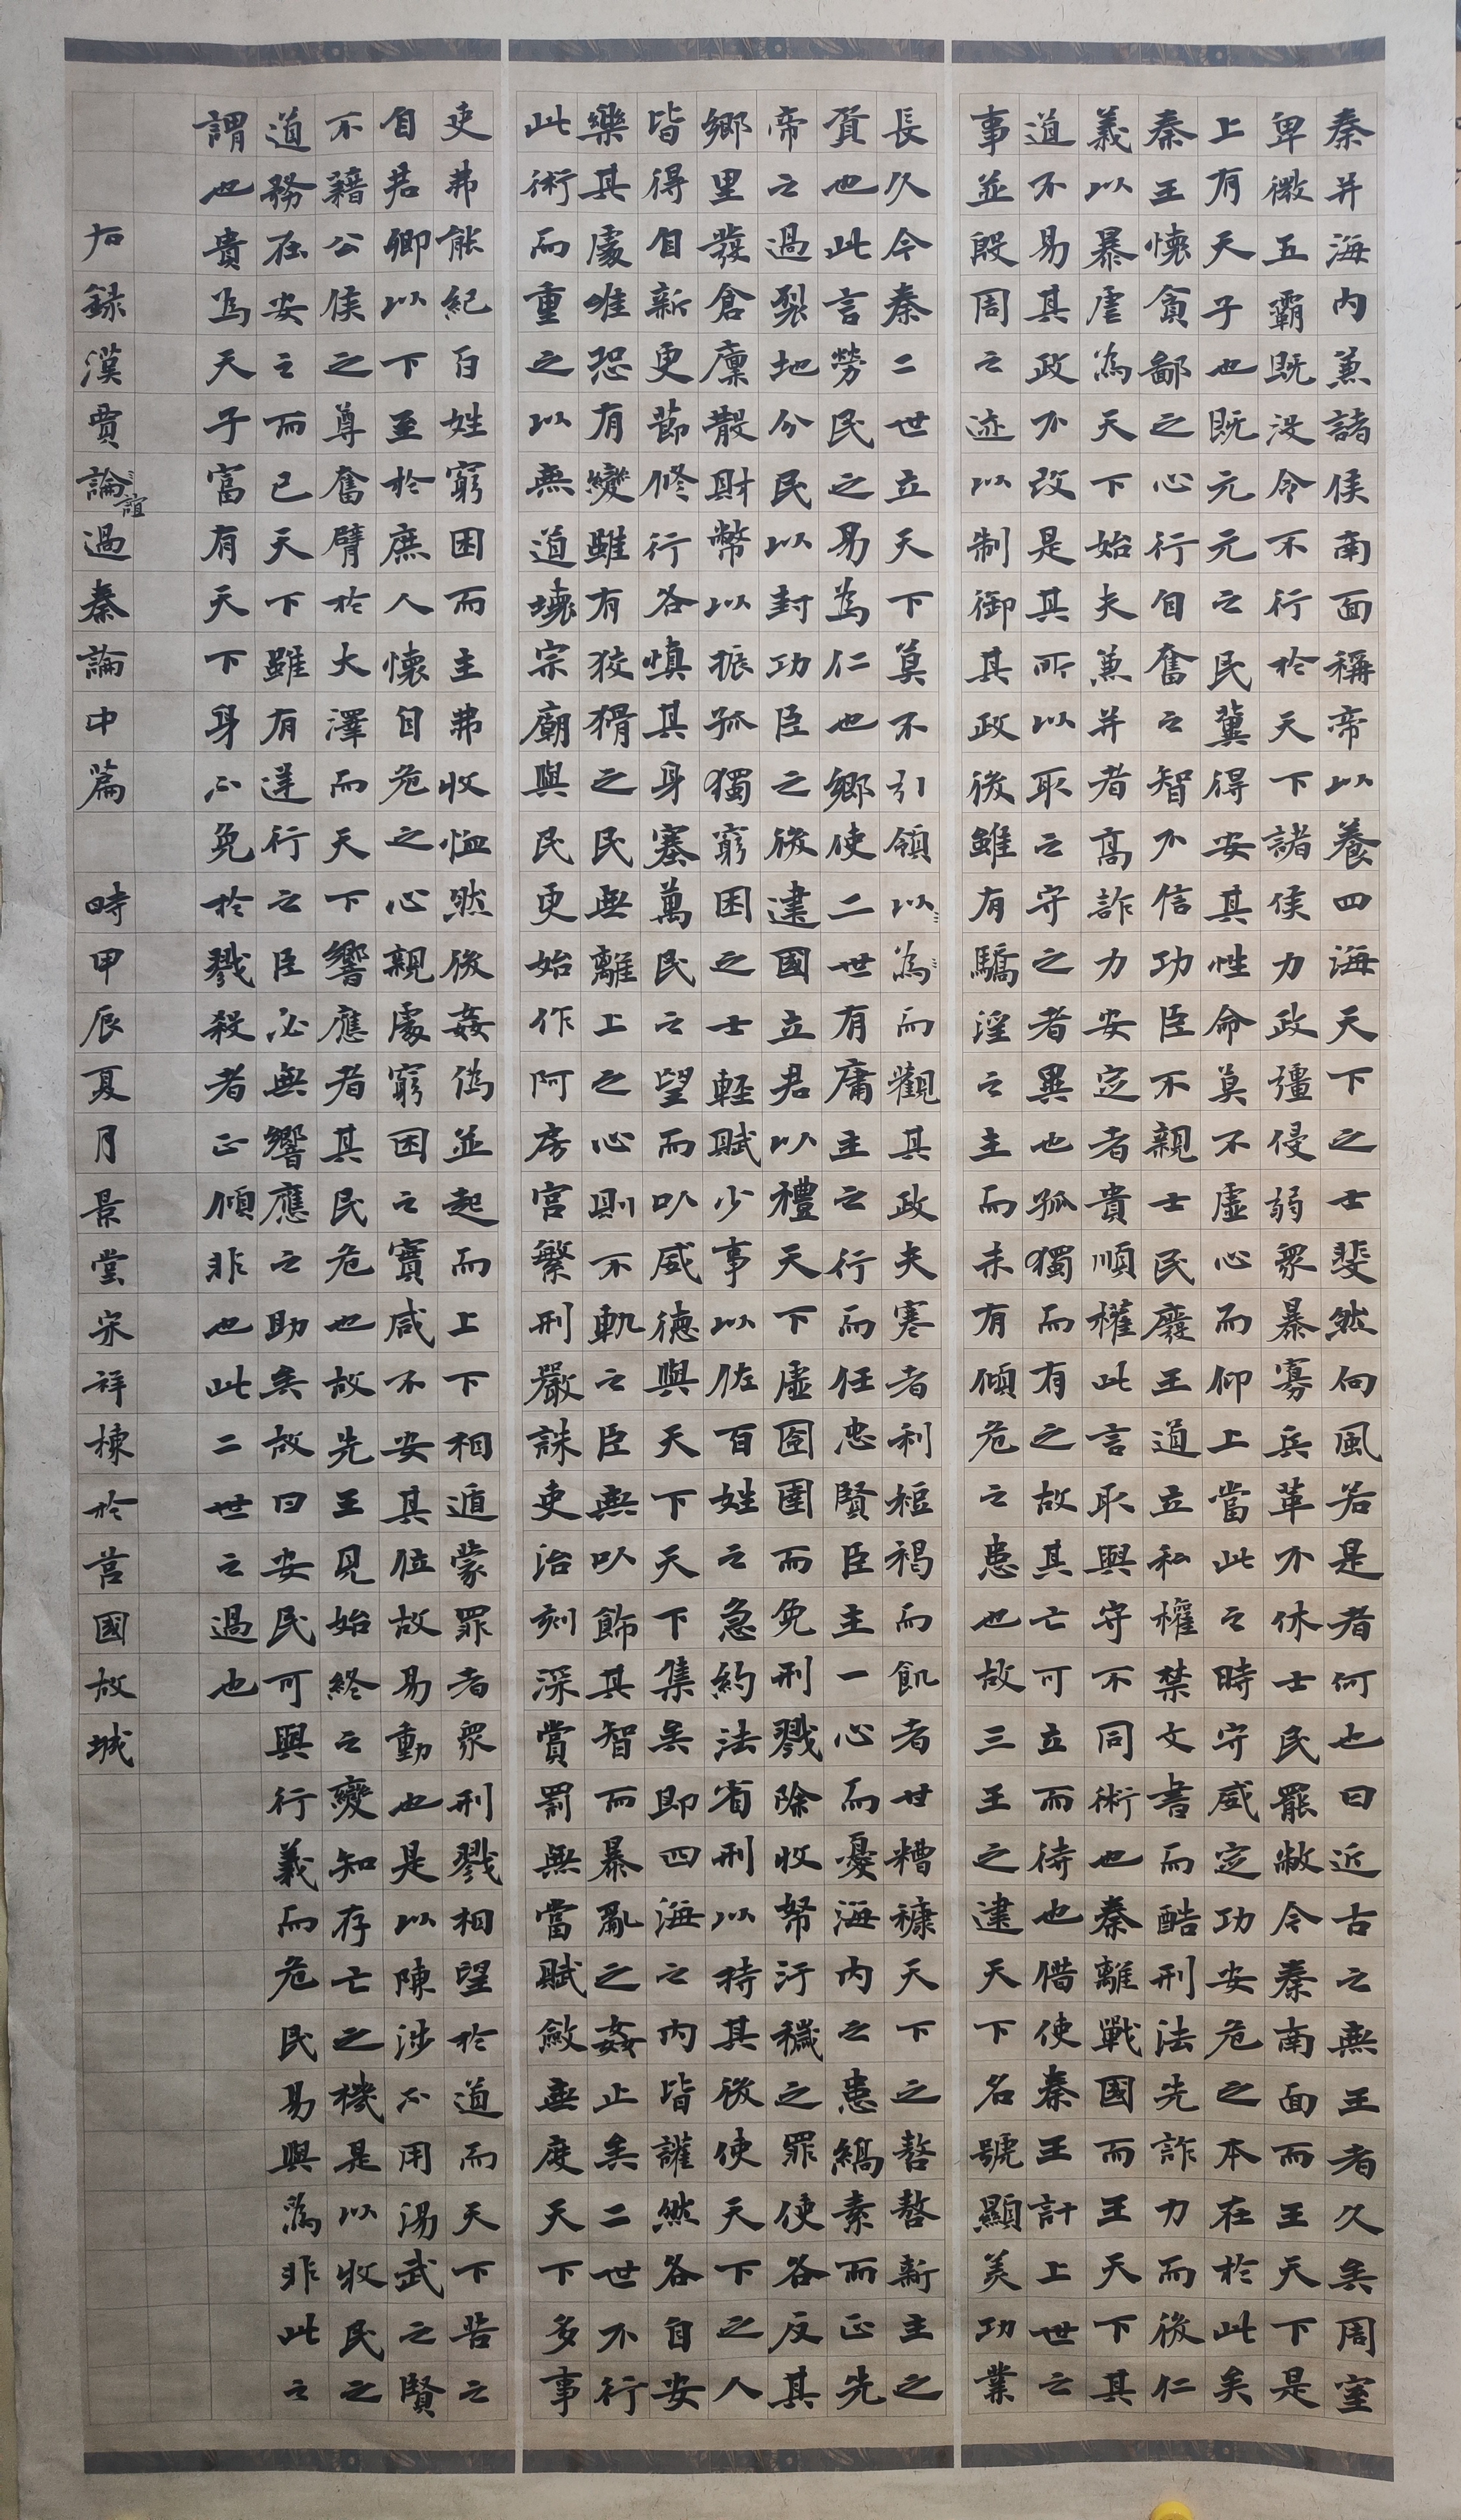 秦并海内兼諸侯南面稱帝以養四海天下之士斐然向風若是者何也曰近古之無王者久矣周室
卑微五霸既没令不行於天下諸侯力政彊侵弱衆暴寡兵革不休士民罷敝今秦南面而王天下是
上有天子也既元元之民冀得安其性命莫不虛心而仰上當此之時守威定功安危之本在於此矣
秦王懷貪鄙之心行自奮之智不信功臣不親士民廢王道立私權禁文書而酷刑法先詐力而後仁
義以暴虐為天下始夫兼并者高詐力安定者貴順權此言取與守不同術也秦離戰國而王天下其
道不易其政不改是其所以取之守之者異也孤獨而有之故其亡可立而待也借使秦王計上世之
事並殷周之迹以制御其政後雖有驕淫之主而未有傾危之患也故三王之建天下名號顯美功業
長久今秦二世立天下莫不引領以為而觀其政夫寒者利裋褐而飢者甘糟糠天下之嗸嗸新主之
資也此言勞民之易為仁也鄉使二世有庸主之行而任忠賢臣主一心而憂海内之患縞素而正先
帝之過裂地分民以封功臣之後建國立君以禮天下虛囹圄而免刑戮除收帑汙穢之罪使各反其
鄉里發倉廩散財幣以振孤獨窮困之士輕賦少事以佐百姓之急約法省刑以持其後使天下之人
皆得自新更節修行各慎其身塞萬民之望而以威德與天下天下集矣即四海之内皆讙然各自安
樂其處唯恐有變雖有狡猾之民無離上之心則不軌之臣無以飾其智而暴亂之姦止矣二世不行
此術而重之以無道壞宗廟與民更始作阿房宮繁刑嚴誅吏治刻深賞罰無當賦斂無度天下多事
吏弗能紀百姓窮困而主弗收恤然後姦偽並起而上下相遁蒙罪者衆刑戮相望於道而天下苦之
自君卿以下至於庶人懷自危之心親處窮困之實咸不安其位故易動也是以陳涉不用湯武之賢
不藉公侯之尊奮臂於大澤而天下響應者其民危也故先王見始終之變知存亡之機是以收民之
道務在安之而已天下雖有逆行之臣必無響應之助矣故曰安民可與行義而危民易與為非此之
謂也貴為天子富有天下身不免於戮殺者正傾非也此二世之過也
右録漢賈論誼過秦論中篇 時甲辰夏月景堂宋祥棟於莒國故城